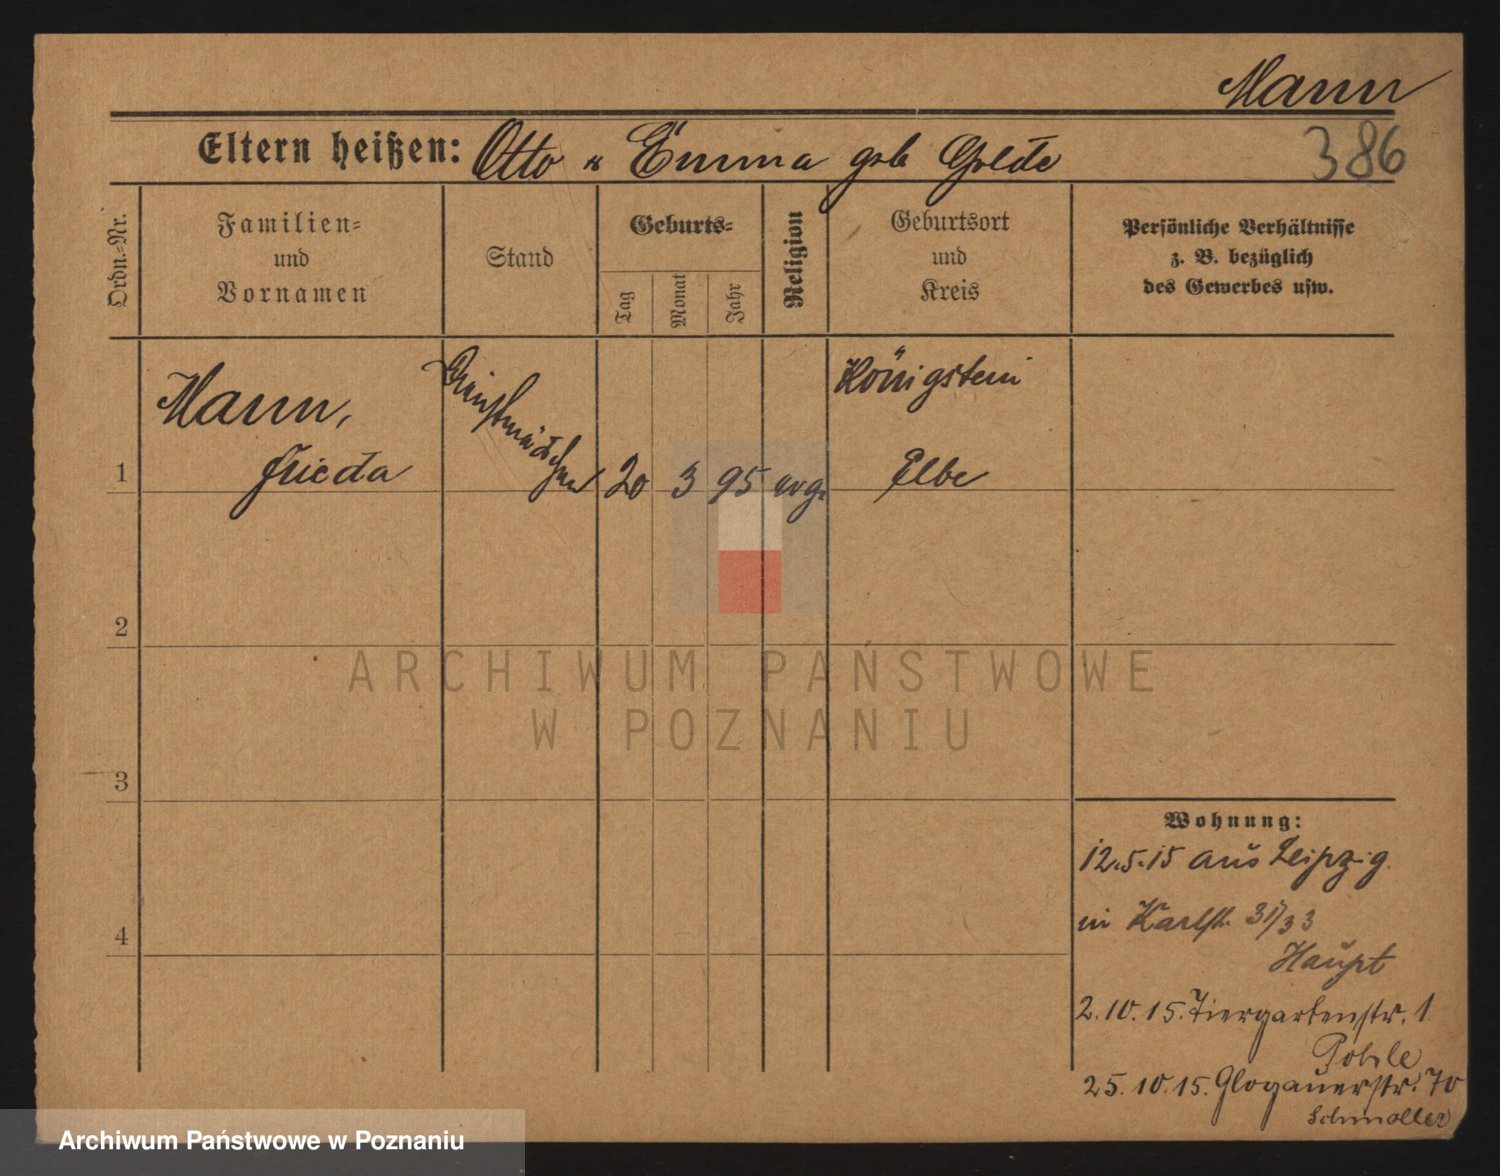 Mann
386
Eltern heißen: Otto u Emma geb Golde
Ordn.-Nr.
Familien-
und
Vornamen
Stand
Geburts-
Tag
Monat
Jahr
Religion
Geburtsort
und
Kreis
Persönliche Verhältnisse
z. B. bezüglich
des Gewerbes usw.
1
Mann,
Frieda
Dienstmädchen
20 3 95 evg.
Königstein
Elbe
2
3
4
ARCHIWUM PAŃSTWOWE
W POZNANIU
Wohnung:
12.5.15 aus Leipzig.
in Karlstr. 31/33
Haupt
2.10.15. Tiergartenstr. 1.
Pohle
25.10.15. Glogauerstr. 70
Schmoller
Archiwum Państwowe w Poznaniu